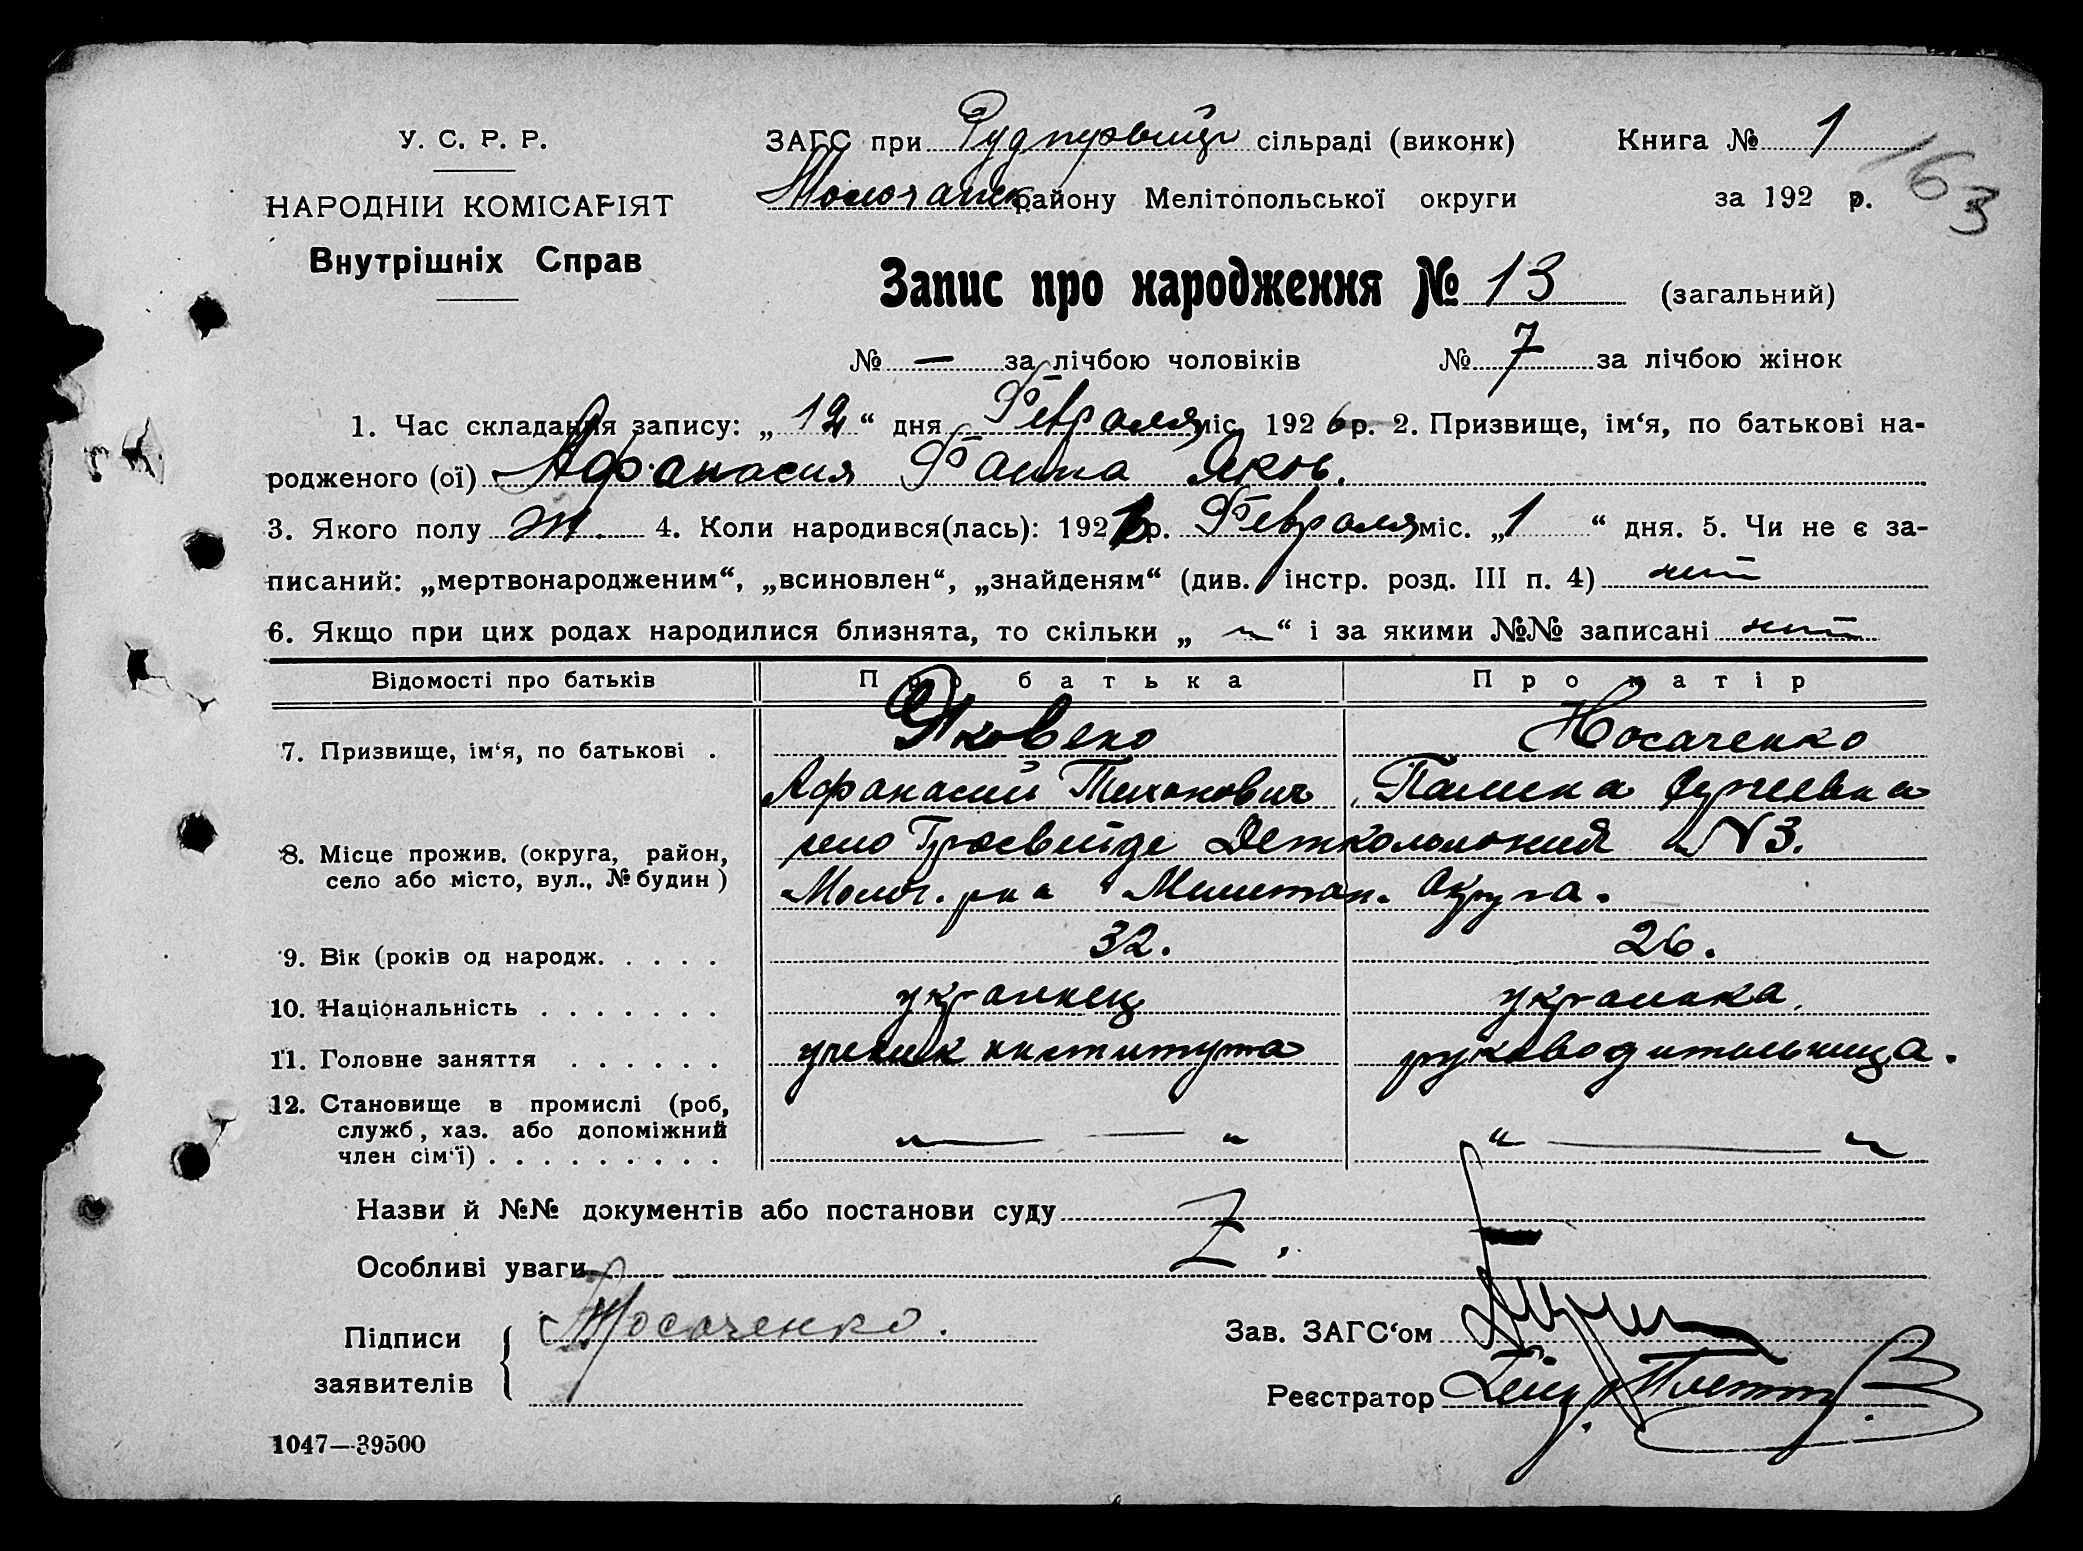 У. С. Р. Р.
НАРОДНІЙ КОМІСАРІЯТ
Внутрішніх Справ
ЗАГС при сільраді (виконк)
Молочанск. району Мелітопольської округи
Книга № 1
за 192 р.
163
Запис про народження № 13 (загальний)
№ — за лічбою чоловіків № 7 за лічбою жінок
1. Час складання запису: „ 12 “ дня Февраля міс. 1926 р. 2. Призвище, ім‘я, по батькові на-
родженого (ої) Афанасия Фаина Яков.
3. Якого полу ж. 4. Коли народився(лась): 192 р. Февраля міс. „ 1 “ дня. 5. Чи не є за-
писаний: „мертвонародженим“, „всиновлен“, „знайденям“ (див. інстр. розд. III п. 4) нет
6. Якщо при цих родах народилися близнята, то скільки „ “ і за якими №№ записані нет
Відомості про батьків Про батька Про матір
7. Призвище, ім‘я, по батькові . Яковенко Носаченко
Афанасий Тихонович Сергеевна
8. Місце прожив. (округа, район, село або місто, вул., № будин) село Гросвейде Детколония N 3.
Молоч. р-на Мелитоп. Округа.
9. Вік (років од народж. . . . . 32. 26.
10. Національність . . . . . . . украинец украинка.
11. Головне заняття . . . . . . ученик института руководительница.
12. Становище в промислі (роб, служб, хаз. або допоміжний член сім‘ї) . . . . . . . . . „ — — „ „ — „
Назви й №№ документів або постанови суду
Особливі уваги
Підписи заявителів Носаченко.
Зав. ЗАГС‘ом
Реєстратор
1047—39500